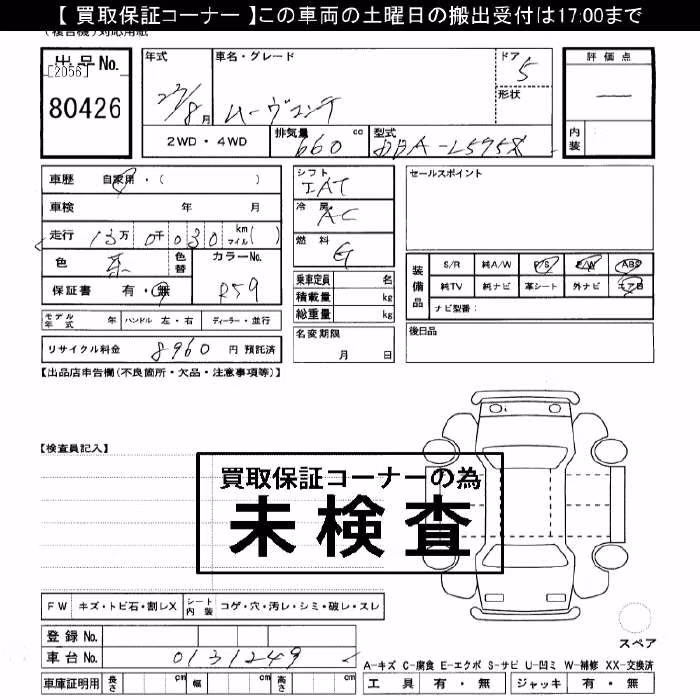 【 買取保証コーナー 】この車両の土曜日の搬出受付は17:00まで
(複合機)対応用紙
出品No.
[2056]
80426
年式 車名・グレード ドア 5
27/8月 ムーヴコンテ 形状
2WD・4WD 排気量 660 cc 型式 DBA-L575S
評価点
―
内装
車歴 自家用・( )
車検 年 月
走行 13万 0千 0 3 0 km マイル( )
色 茶 色替 カラーNo.
保証書 有・無 R59
モデル年式 年 ハンドル 左・右 ディーラー・並行
リサイクル料金 8960 円 預託済
シフト
IAT
冷房
AC
燃料
G
乗車定員 名
積載量 kg
総重量 kg
名変期限
月 日
セールスポイント
装備品 S/R 純A/W P/S P/W ABS
純TV 純ナビ 革シート 外ナビ エアB
ナビ型番:
後日品
【出品店申告欄(不良箇所・欠品・注意事項等)】
【検査員記入】
買取保証コーナーの為
未検査
FW キズ・トビ石・割レX シート内装 コゲ・穴・汚レ・シミ・破レ・スレ
登録 No.
車台 No. 0131249
車庫証明用 長さ cm 幅 cm 高さ cm
スペア
A-キズ C-腐食 E-エクボ S-サビ U-凹ミ W-補修 XX-交換済
工具 有・無 ジャッキ 有・無